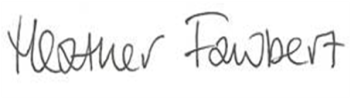 Heather Fawbert